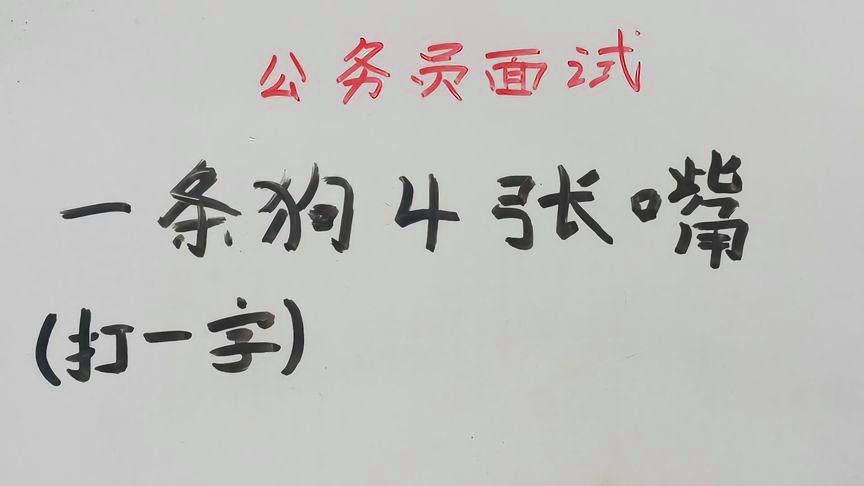 公务员面试
一条狗4张嘴
(打一字)